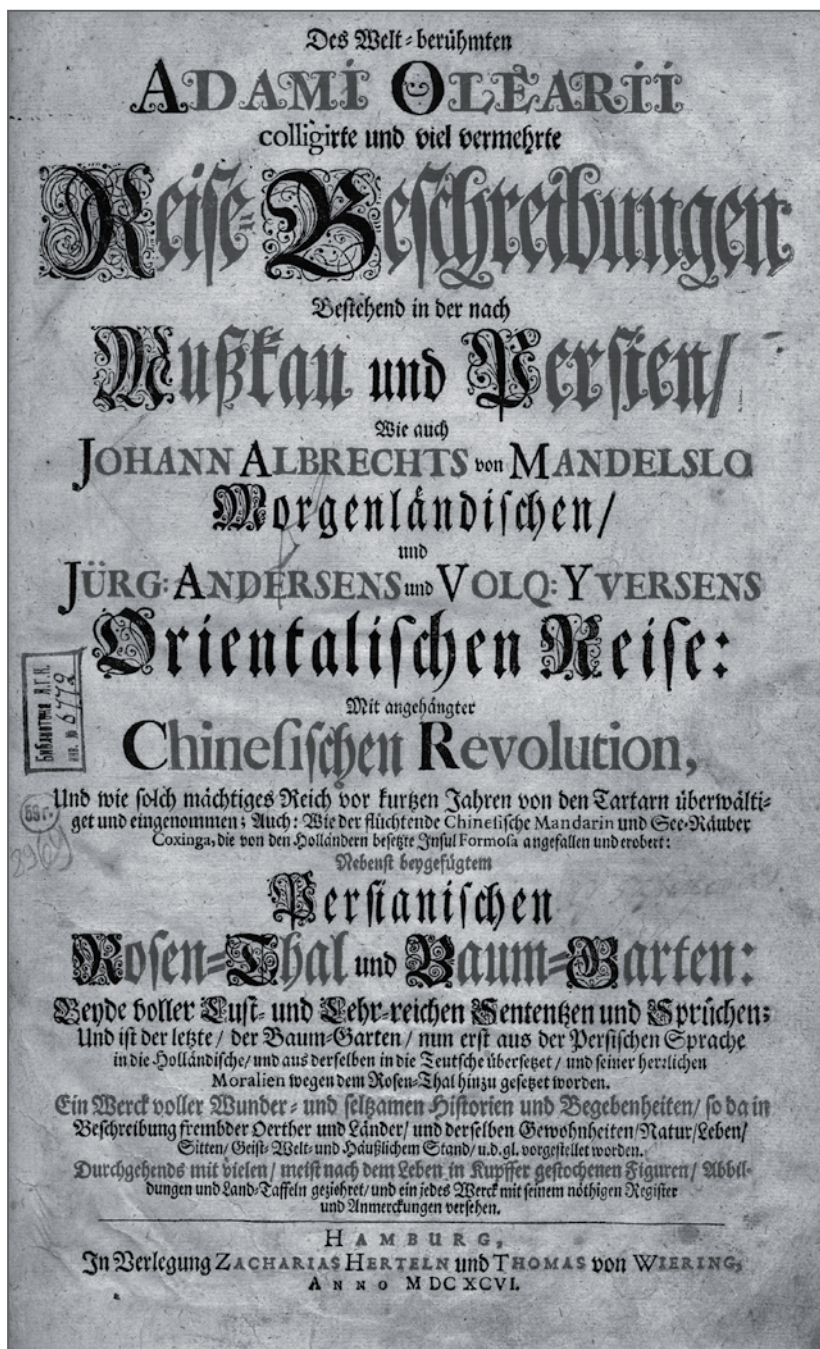 Des Welt-berühmten
ADAMI OLEARII
colligirte und viel vermehrte
Reise-Beschreibungen
Bestehend in der nach
Mußkau und Persien/
Wie auch
JOHANN ALBRECHTS von MANDELSLO
Morgenländischen/
und
JÜRG: ANDERSENS und VOLQ: YVERSENS
Orientalischen Reise:
Mit angehängter
Chinesischen Revolution,
Und wie solch mächtiges Reich vor kurtzen Jahren von den Tartarn überwälti-
get und eingenommen; Auch: Wie der flüchtende Chinesische Mandarin und See-Räuber
Coxinga, die von den Holländern besetzte Insul Formosa angefallen und erobert:
Nebenst beygefügtem
Persianischen
Rosen-Thal und Baum-Garten:
Beyde voller Lust- und Lehr-reichen Sententzen und Sprüchen;
Und ist der letzte/ der Baum-Garten/ nun erst aus der Persischen Sprache
in die Holländische/ und aus derselben in die Teutsche übersetzet/ und seiner herrlichen
Moralien wegen dem Rosen-Thal hinzu gesetzet worden.
Ein Werck voller Wunder- und seltzamen Historien und Begebenheiten/ so da in
Beschreibung frembder Oerther und Länder/ und derselben Gewohnheiten/ Natur/ Leben/
Sitten/ Geist- Welt- und Häußlichem Stand/ u.d.gl. vorgestellet worden.
Durchgehends mit vielen/ meist nach dem Leben in Kupffer gestochenen Figuren/ Abbil-
dungen und Land-Taffeln geziehret/ und ein jedes Werck mit seinem nöthigen Register
und Anmerckungen versehen.
HAMBURG,
In Verlegung ZACHARIAS HERTELN und THOMAS von WIERING,
ANNO MDCXCVI.
Библиотека И.Г.Н.
инв. № 6772